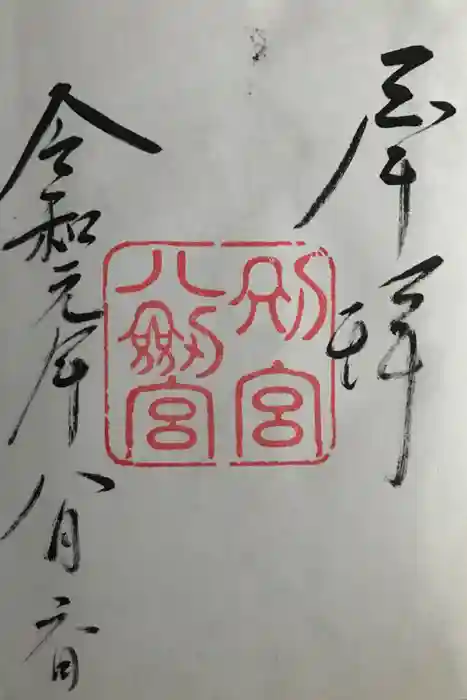 奉拝
別宮
八剱宮
令和元年八月六日